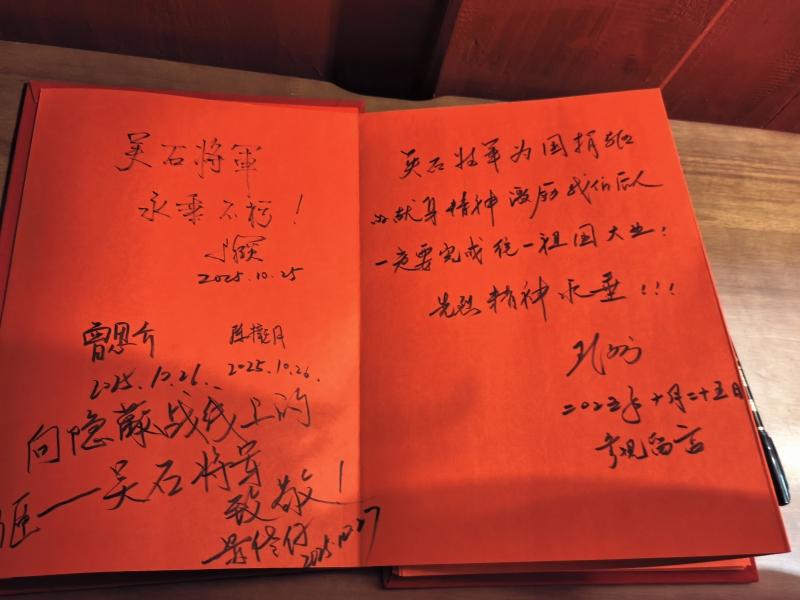 吴石将軍
永垂不朽！
2025.10.25
曾恩	陈
2025.10.26.	2025.10.26.
向隐蔽战线上的
一吴石将军
致敬！
2025.10.27
吴石将军为国捐躯
的献身精神激励我们后人
一定要完成统一祖国大业！
先烈精神永垂！！！
二0二五年十月二十五日
参观留言